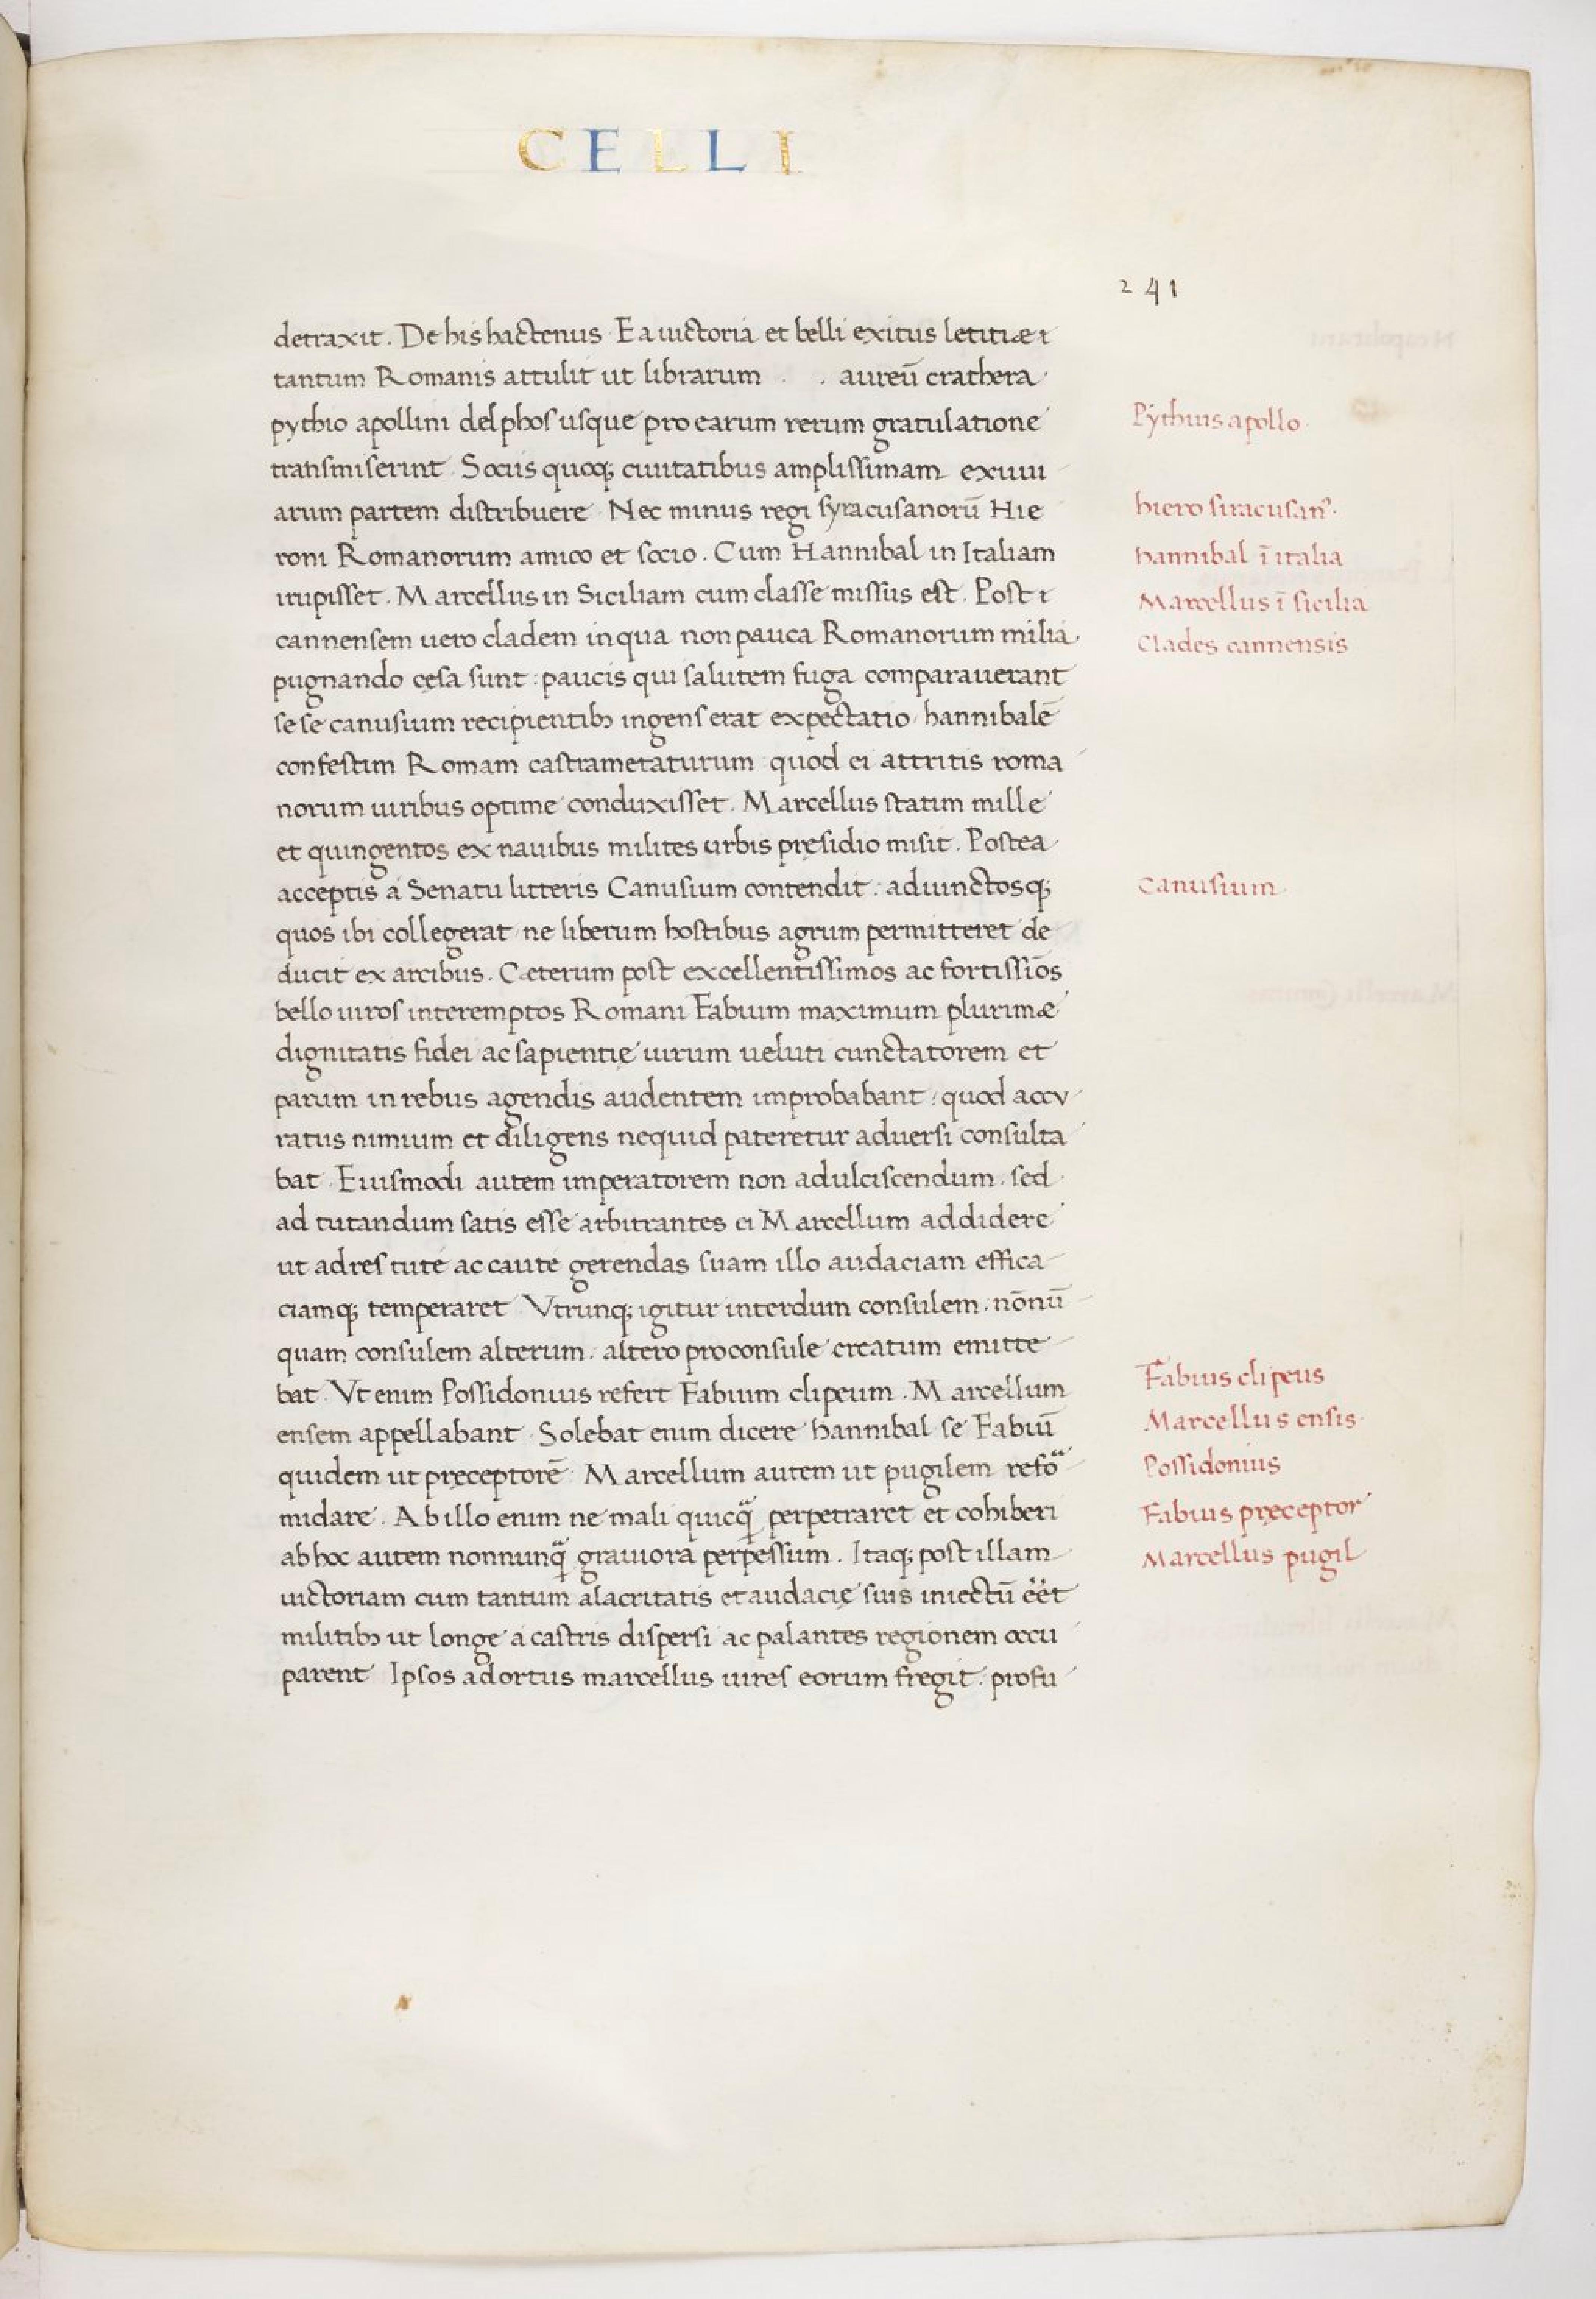 CELLI
241
detraxit. De his hactenus. Ea uictoria et belli exitus letitiæ
tantum Romanis attulit ut librarum . . aureū crathera
pythio apollini delphos usque pro earum rerum gratulatione
transmiserint. Sociis quoq; ciuitatibus amplissimam exuui
arum partem distribuere. Nec minus regi syracusanorū Hie
roni Romanorum amico et socio. Cum Hannibal in Italiam
irupisset. Marcellus in Siciliam cum classe missus est. Post
cannensem uero cladem in qua non pauca Romanorum milia
pugnando cęsa sunt: paucis qui salutem fuga comparauerant
sese canusium recipientibꝫ ingens erat expectatio hannibalē
confestim Romam castrametaturum quod ei attritis roma
norum uiribus optime conduxisset. Marcellus statim mille
et quingentos ex nauibus milites urbis pręsidio misit. Postea
acceptis á Senatu litteris Canusium contendit: aduinctosq;
quos ibi collegerat ne liberum hostibus agrum permitteret de
ducit ex arcibus. Cæterum post excellentissimos ac fortissīos
bello uiros interemptos Romani Fabium maximum plurimæ
dignitatis fidei ac sapientię uirum ueluti cunctatorem et
parum in rebus agendis audentem improbabant: quod accu
ratus nimium et diligens nequid pateretur aduersi consulta
bat. Eiusmodi autem imperatorem non ad ulciscendum. sed
ad tutandum satis esse arbitrantes ei Marcellum addidere
ut ad res tute ac caute gerendas suam illo audaciam effica
ciamq; temperaret. Vtrunq; igitur interdum consulem. nōnū
quam consulem alterum. altero proconsule creatum emitte
bat. Vt enim Possidonius refert Fabium clipeum. Marcellum
ensem appellabant. Solebat enim dicere hannibal se Fabiū
quidem ut pręceptorē. Marcellum autem ut pugilem refo
midare. Ab illo enim ne mali quicq̈ perpetraret et cohiberi
ab hoc autem nonnunq̈ grauiora perpessum. Itaq; post illam
uictoriam cum tantum alacritatis et audacię suis iniectū eēt
militibꝫ ut longe á castris dispersi ac palantes regionem occu
parent. Ipsos adortus marcellus uires eorum fregit. profu
Pythius apollo
hiero siracusanꝰ.
hannibal ī italia
Marcellus ī sicilia
Clades cannensis
Canusium
Fabius clipeus
Marcellus ensis
Possidonius
Fabius pręceptor
Marcellus pugil